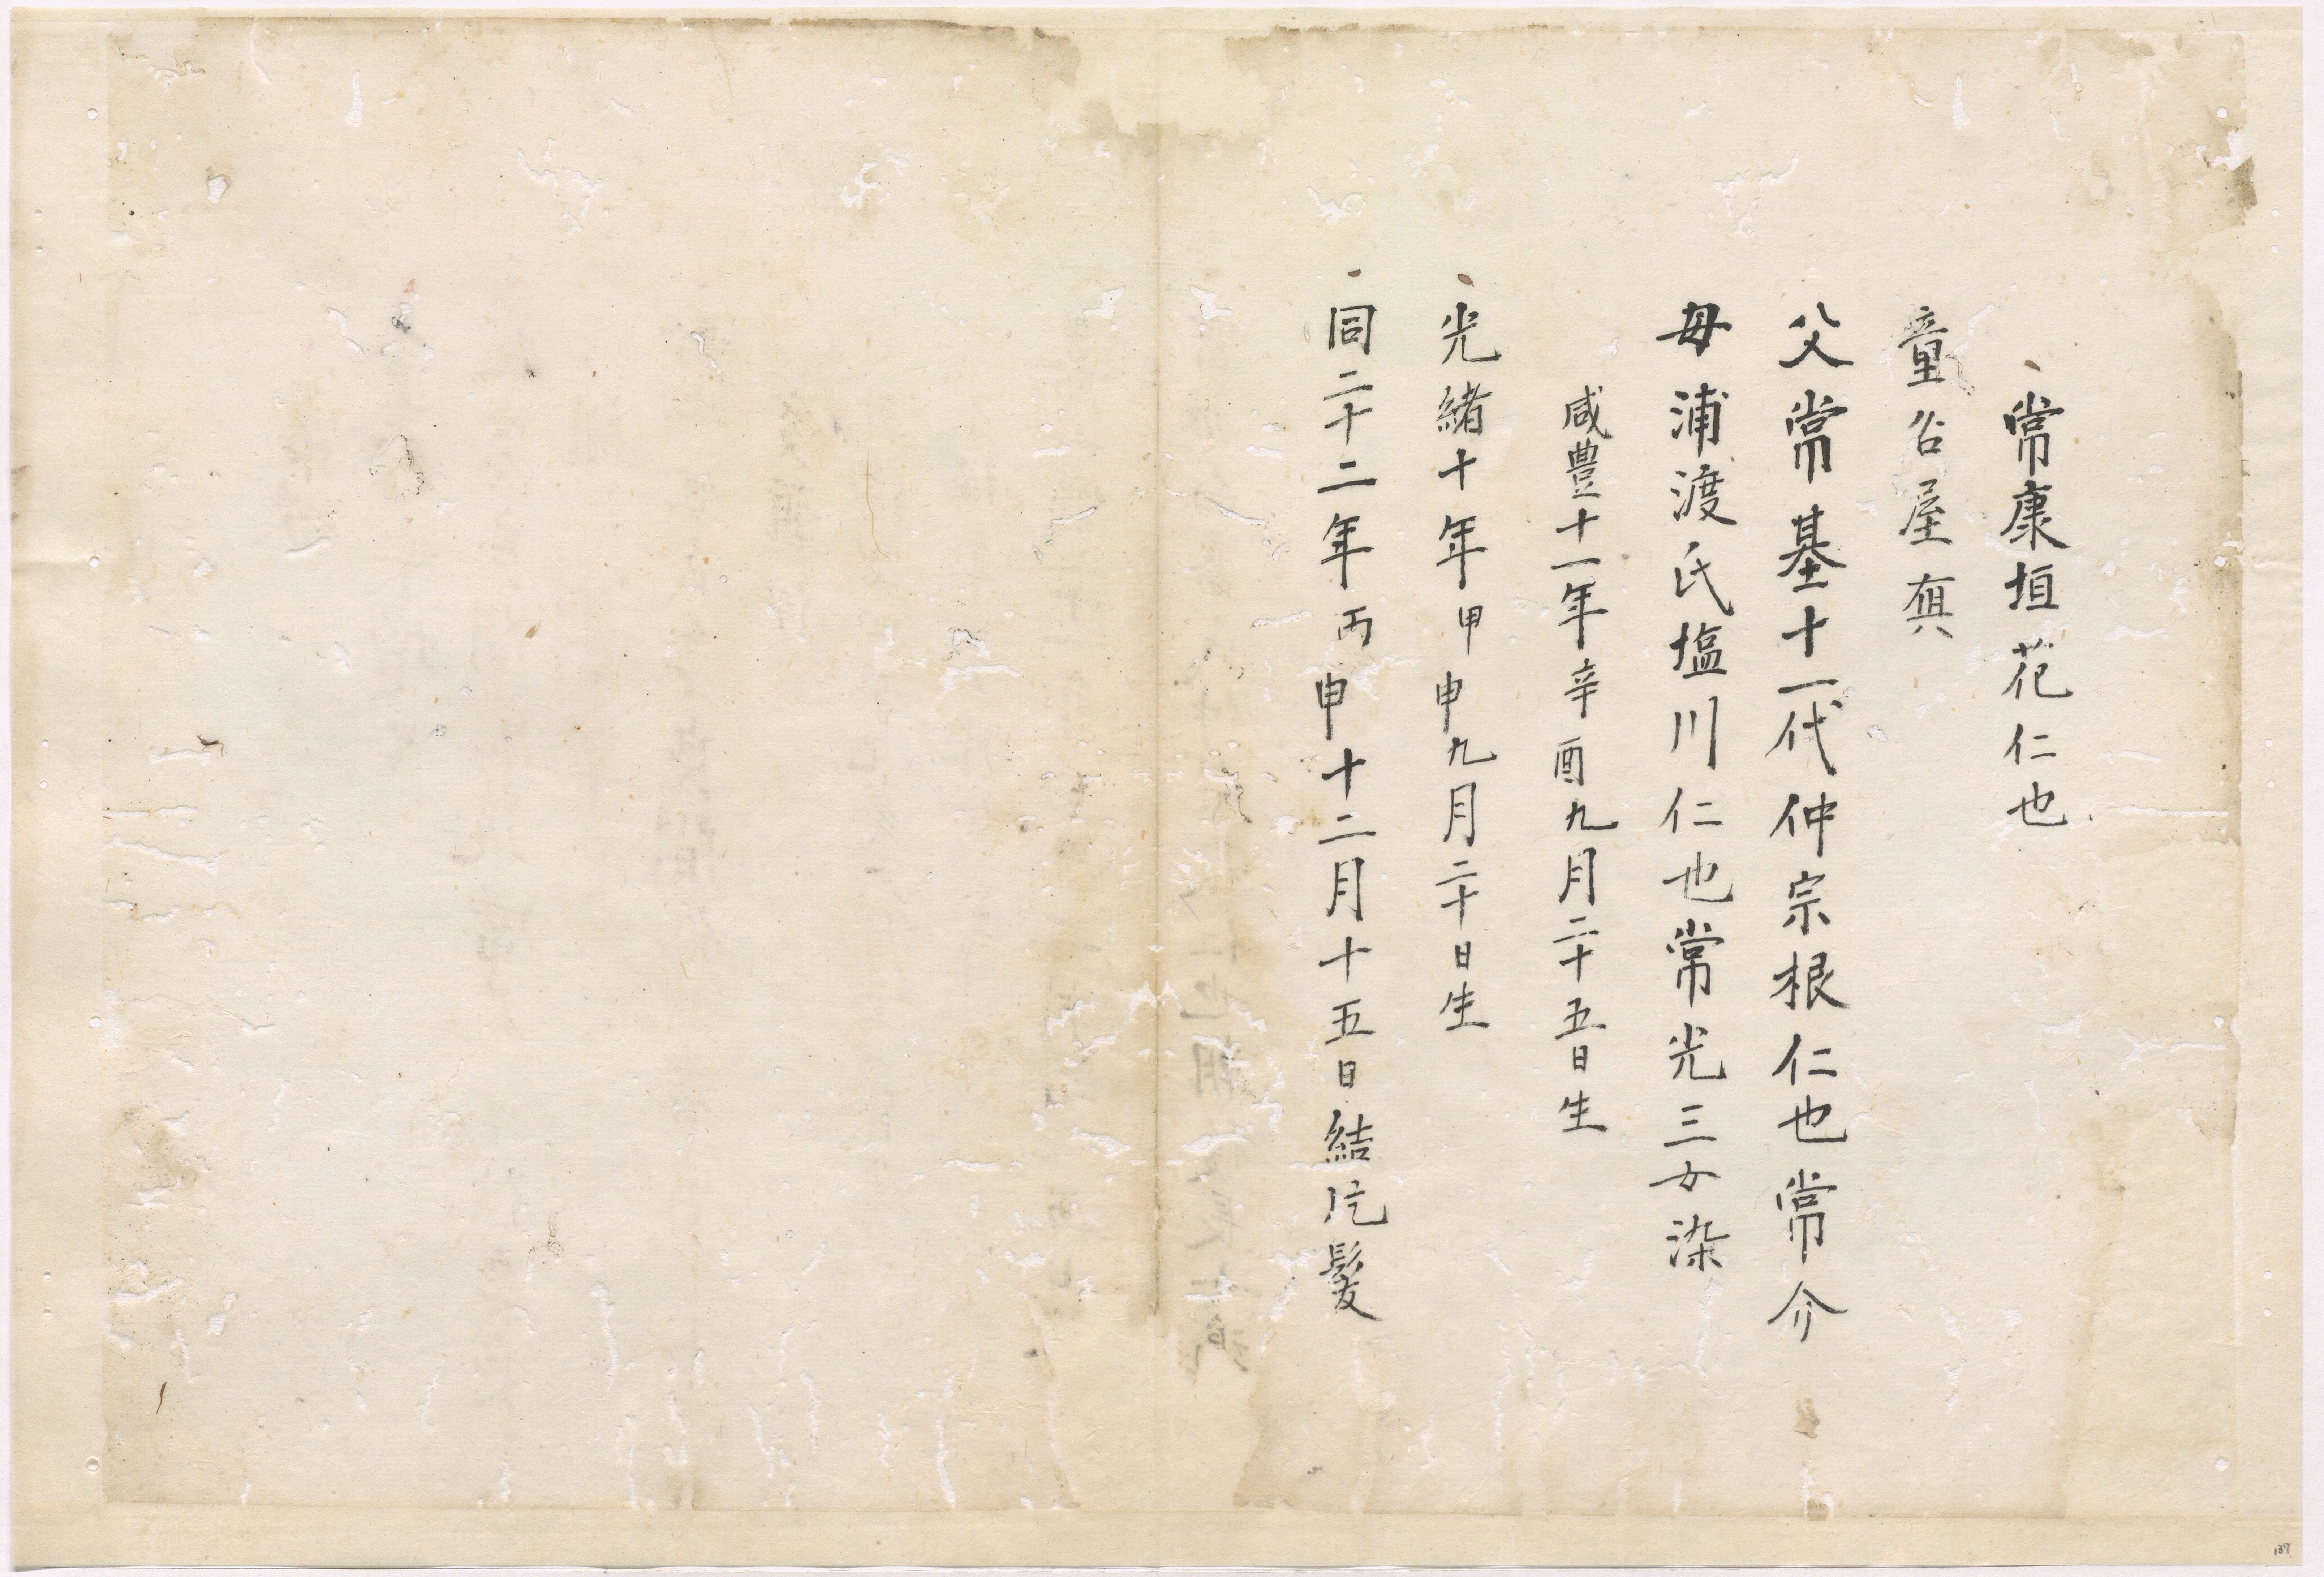 常康垣花仁也
童名屋真
父常基十一代仲宗根仁也常介
母浦渡氏塩川仁也常光三女染
咸豊十一年辛酉九月二十五日生
光緒十年甲申九月二十日生
同二十二年丙申十二月十五日結片髪
137